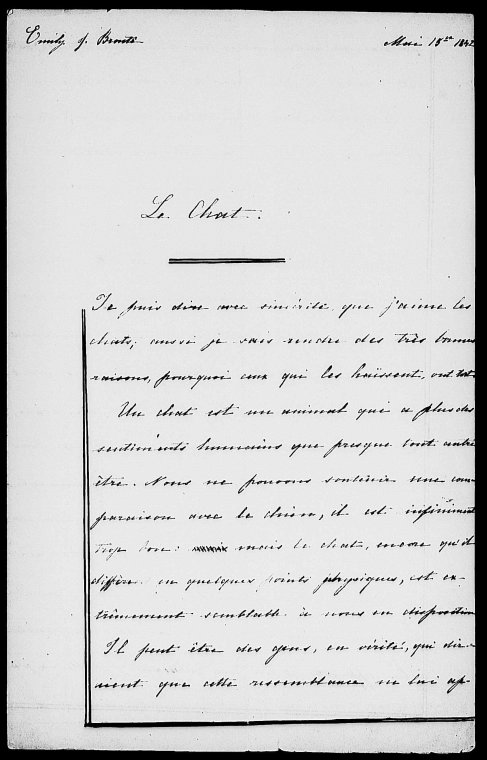 Emily J. Brontë
Mai 15me 1842
Le Chat.
Je puis dire avec sincérité, que j'aime les
chats; aussi je sais rendre des très bonnes
raisons, pourquoi ceux qui les haïssent, ont tort.
Un chat est un animal qui a plus des
sentiments humains que presque tout autre
être. Nous ne pouvons soutenir une com-
paraison avec le chien, il est infiniment
trop bon: mais le chat, encore qu'il
diffère en quelques points physiques, est ex-
trêmement semblable à nous en disposition
Il peut être des gens, en vérité, qui dir-
aient que cette ressemblance ne lui ap-